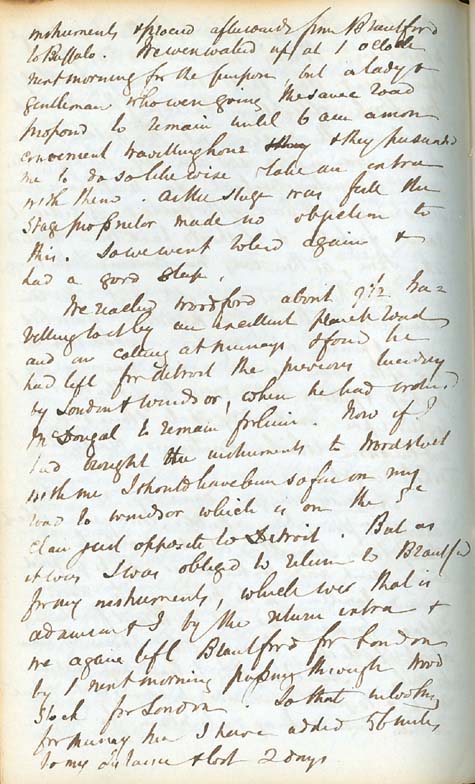 instruments & proceed afterwards from Brantford
to Buffalo. We were waked up at 1 o'clock
next morning for the purpose, but a lady &
gentleman who were going the same road
proposed to remain until 6 am a more
convenient travelling hour & they persuaded
me to do so likewise & take an extra
with them. As the stage was full the
Stage proprietor made no objection to
this. So we went to bed again &
had a good sleep.
We reached Woodford about 9 1/2 tra=
velling to it by an excellent plank road
and on calling at Murrays I found he
had left for Detroit the previous Tuesday
by London & Windsor, where he had ordered
McDougal to remain for him. Now if I
had brought the instruments to Woodstock
with me I should have been so far on my
road to Windsor which is on the
just opposite to Detroit. But as
it was I was obliged to return to Brantford
for my instruments, which was that is
& I by the return extra &
we again left Brantford for London
by 1 next morning passing through Wood
Stock for London. So that in looking
for Murray here I have added 56 miles
to my distance & lost 2 days